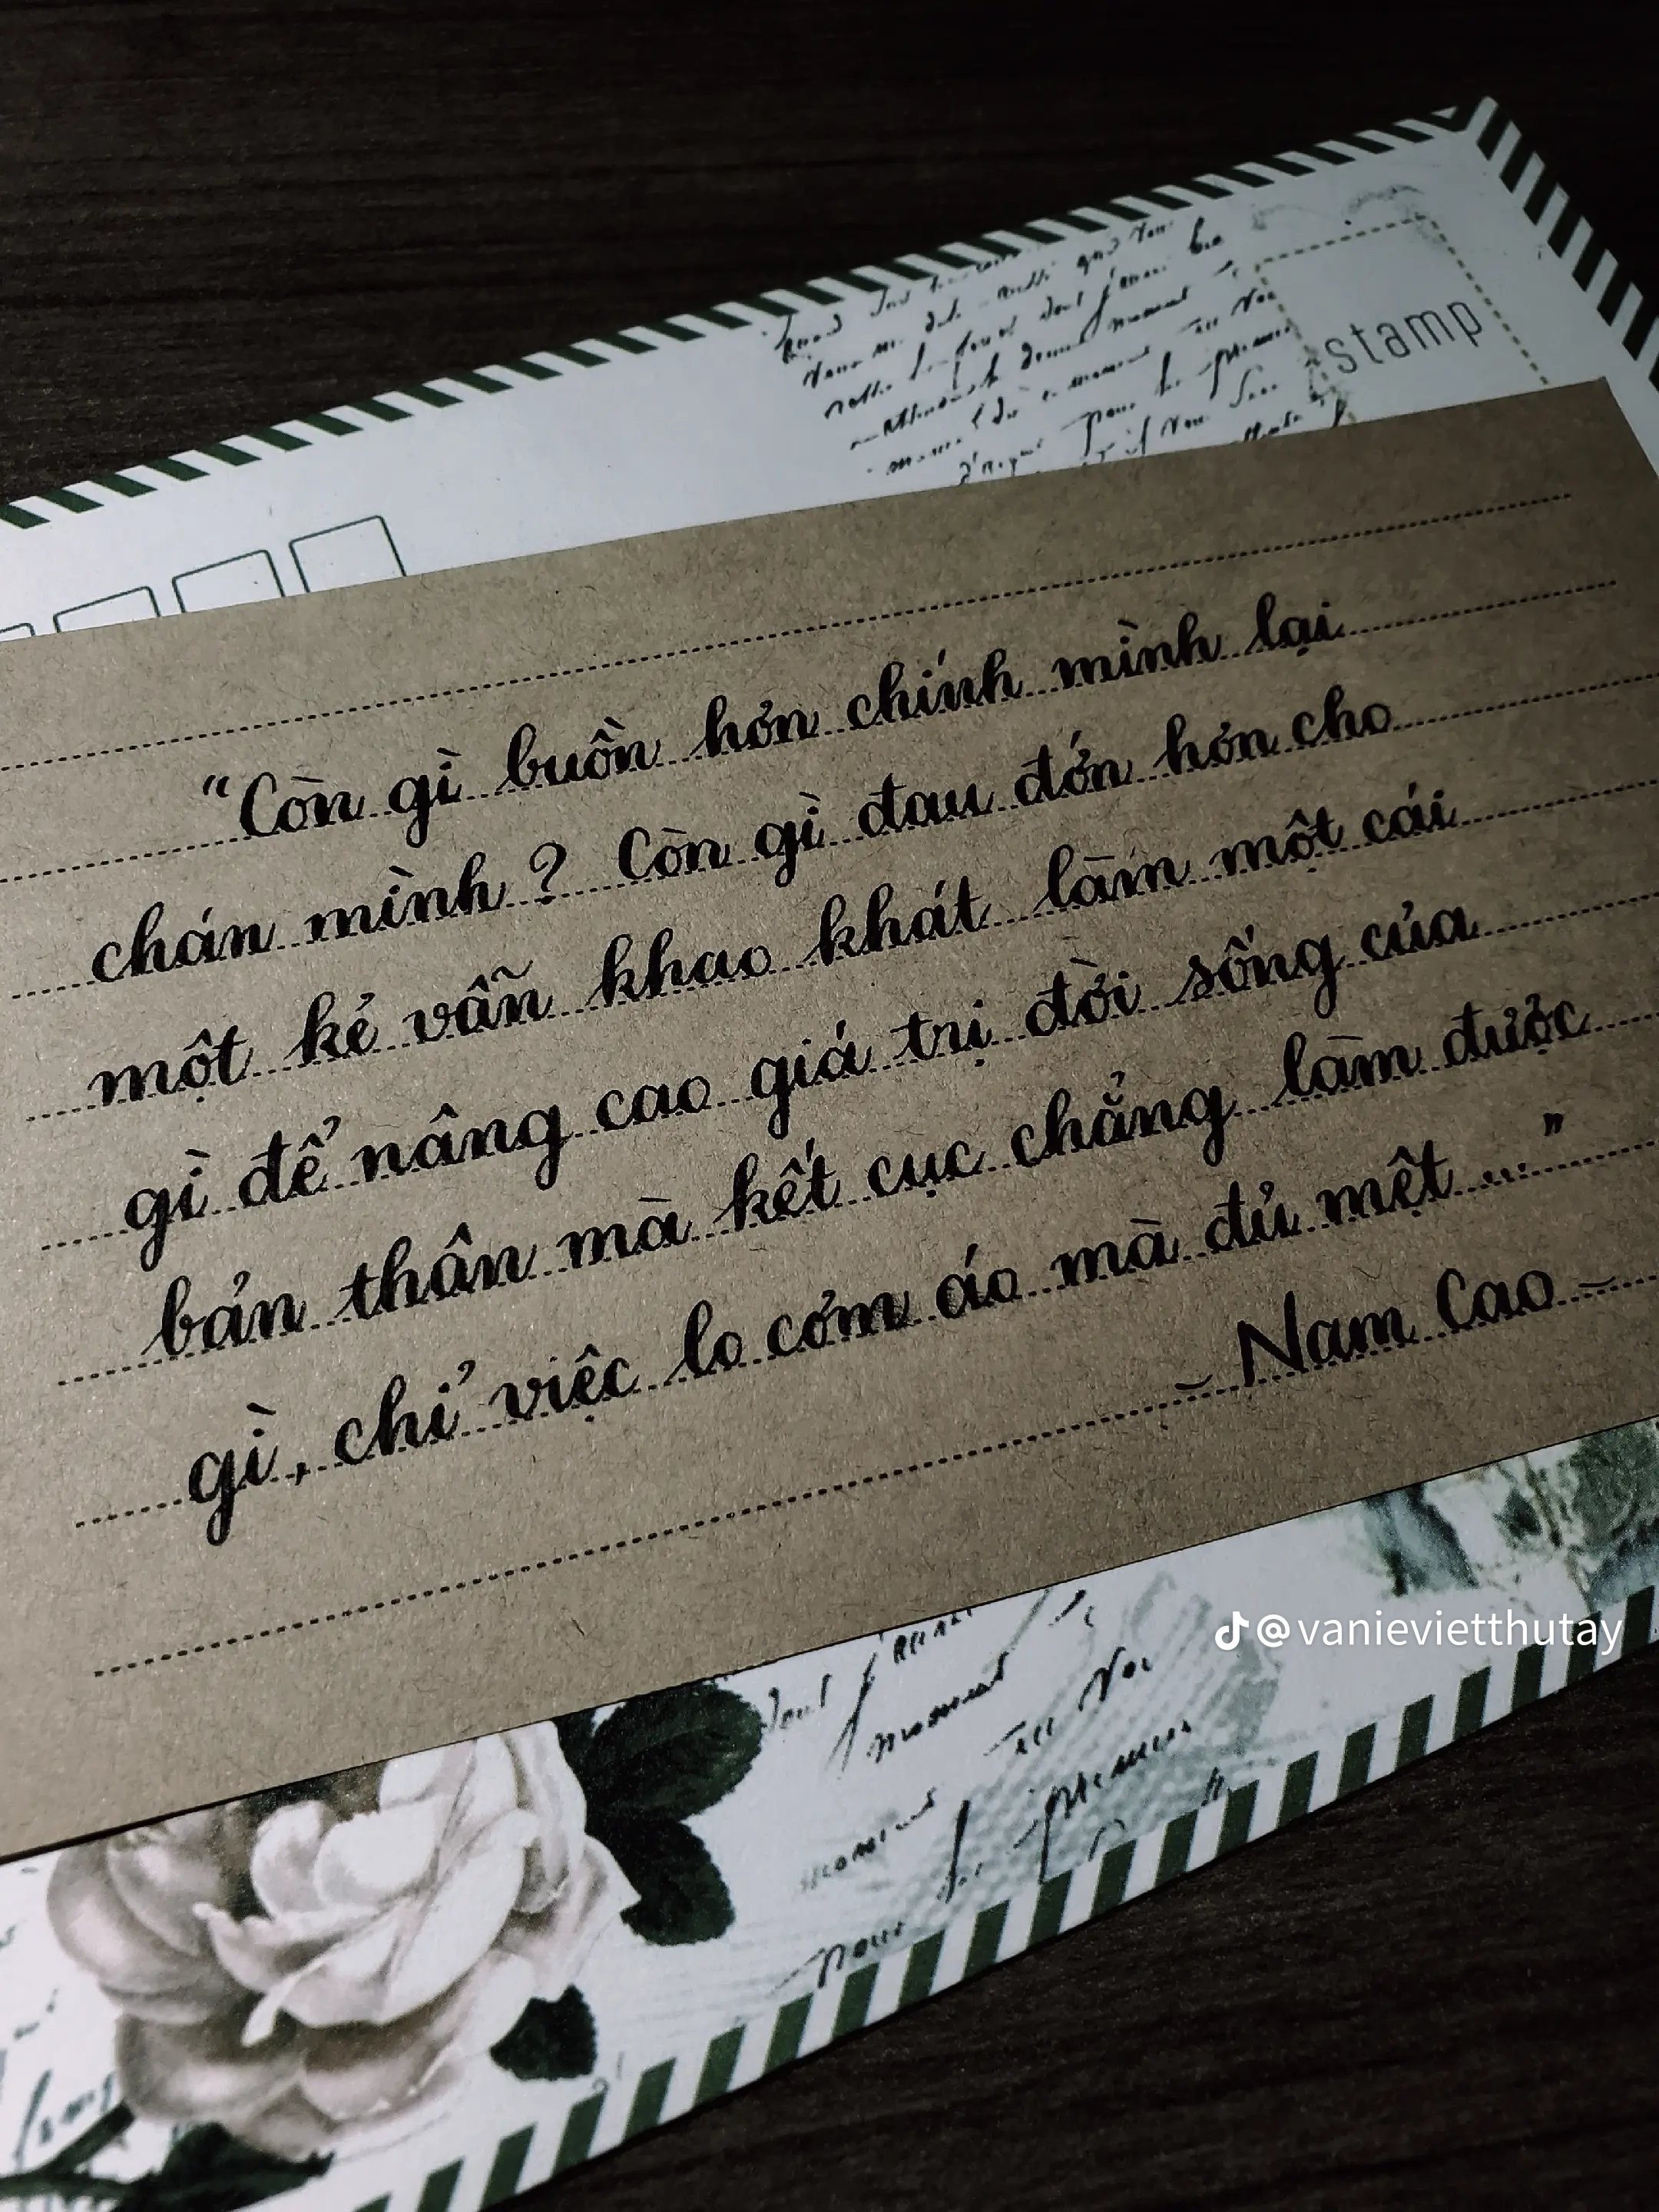 stamp
“Còn gì buồn hơn chính mình lại
chán mình? Còn gì đau đớn hơn cho
một kẻ vẫn khao khát làm một cái
gì để nâng cao giá trị đời sống của
bản thân mà kết cục chẳng làm được
gì, chỉ việc lo cơm áo mà đủ mệt ...”
- Nam Cao -
@vanievietthutay